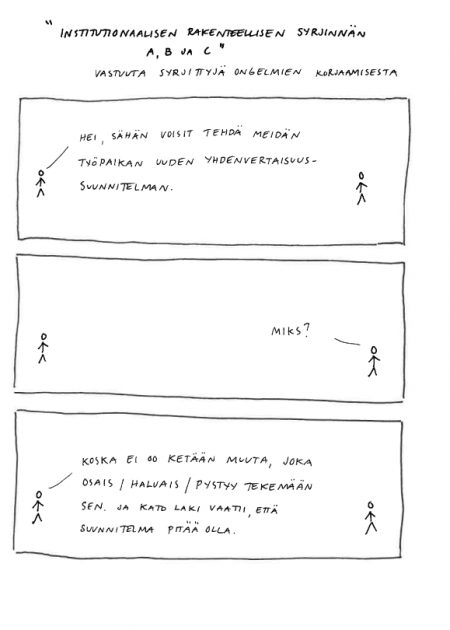 "INSTITUTIONAALISEN RAKENTEELLISEN SYRJINNÄN
A, B JA C"
VASTUUTA SYRJITTYJÄ ONGELMIEN KORJAAMISESTA
HEI, SÄHÄN VOISIT TEHDÄ MEIDÄN
TYÖPAIKAN UUDEN YHDENVERTAISUUS-
SUUNNITELMAN.
MIKS?
KOSKA EI OO KETÄÄN MUUTA, JOKA
OSAIS / HALUAIS / PYSTYY TEKEMÄÄN
SEN. JA KATO LAKI VAATII, ETTÄ
SUUNNITELMA PITÄÄ OLLA.